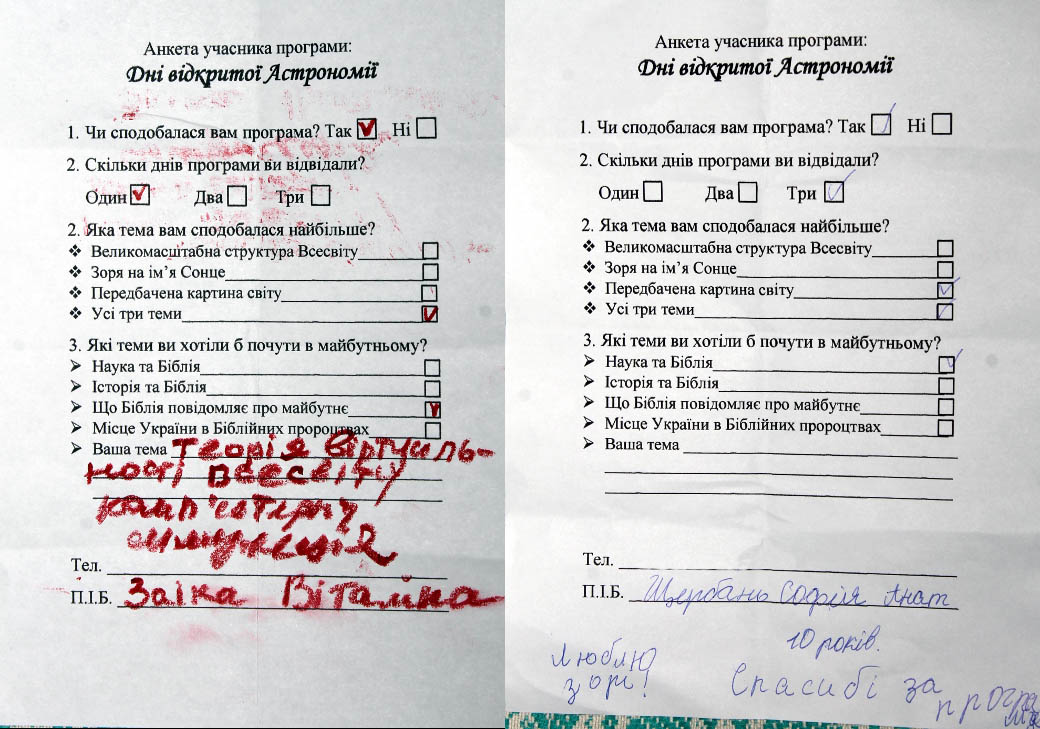 Анкета учасника програми:
Дні відкритої Астрономії
1. Чи сподобалася вам програма? Так Ні
2. Скільки днів програми ви відвідали?
Один Два Три
2. Яка тема вам сподобалася найбільше?
❖ Великомасштабна структура Всесвіту
❖ Зоря на ім’я Сонце
❖ Передбачена картина світу
❖ Усі три теми
3. Які теми ви хотіли б почути в майбутньому?
➢ Наука та Біблія
➢ Історія та Біблія
➢ Що Біблія повідомляє про майбутнє
➢ Місце України в Біблійних пророцтвах
➢ Ваша тема теорія віртуаль-
ності всесвіту
комп'ютерну
симуляція
Тел.
П.І.Б. Заіка Віталіна
Анкета учасника програми:
Дні відкритої Астрономії
1. Чи сподобалася вам програма? Так Ні
2. Скільки днів програми ви відвідали?
Один Два Три
2. Яка тема вам сподобалася найбільше?
❖ Великомасштабна структура Всесвіту
❖ Зоря на ім’я Сонце
❖ Передбачена картина світу
❖ Усі три теми
3. Які теми ви хотіли б почути в майбутньому?
➢ Наука та Біблія
➢ Історія та Біблія
➢ Що Біблія повідомляє про майбутнє
➢ Місце України в Біблійних пророцтвах
➢ Ваша тема
Тел.
П.І.Б. Щербань Софія Анат
10 років.
Люблю
зорі!
Спасибі за
програму